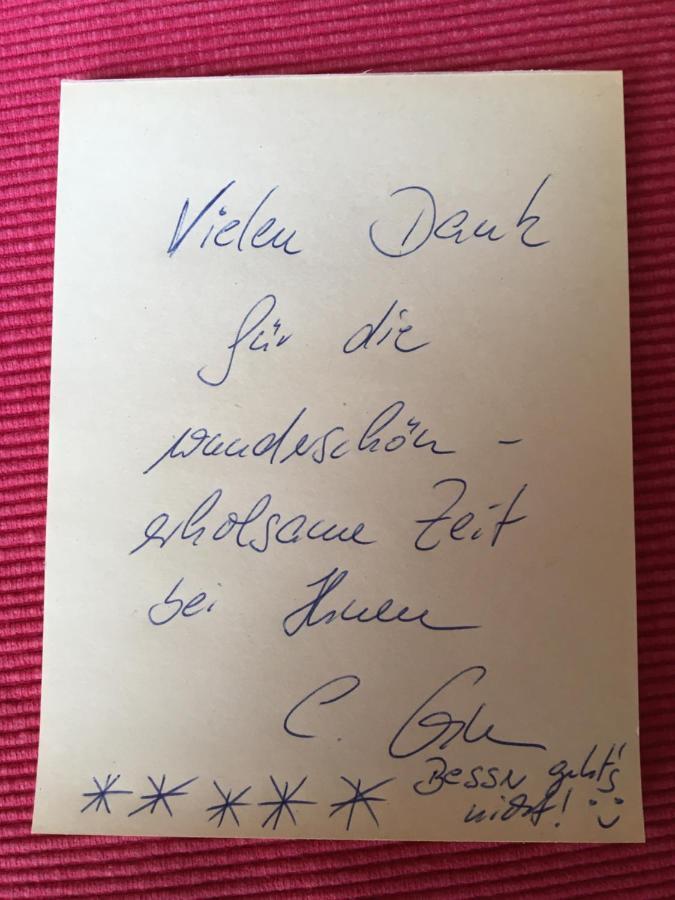 Vielen Dank
für die
wunderschön -
erholsame Zeit
bei Ihnen
C.
* * * * * Besser geht's
nicht! :)